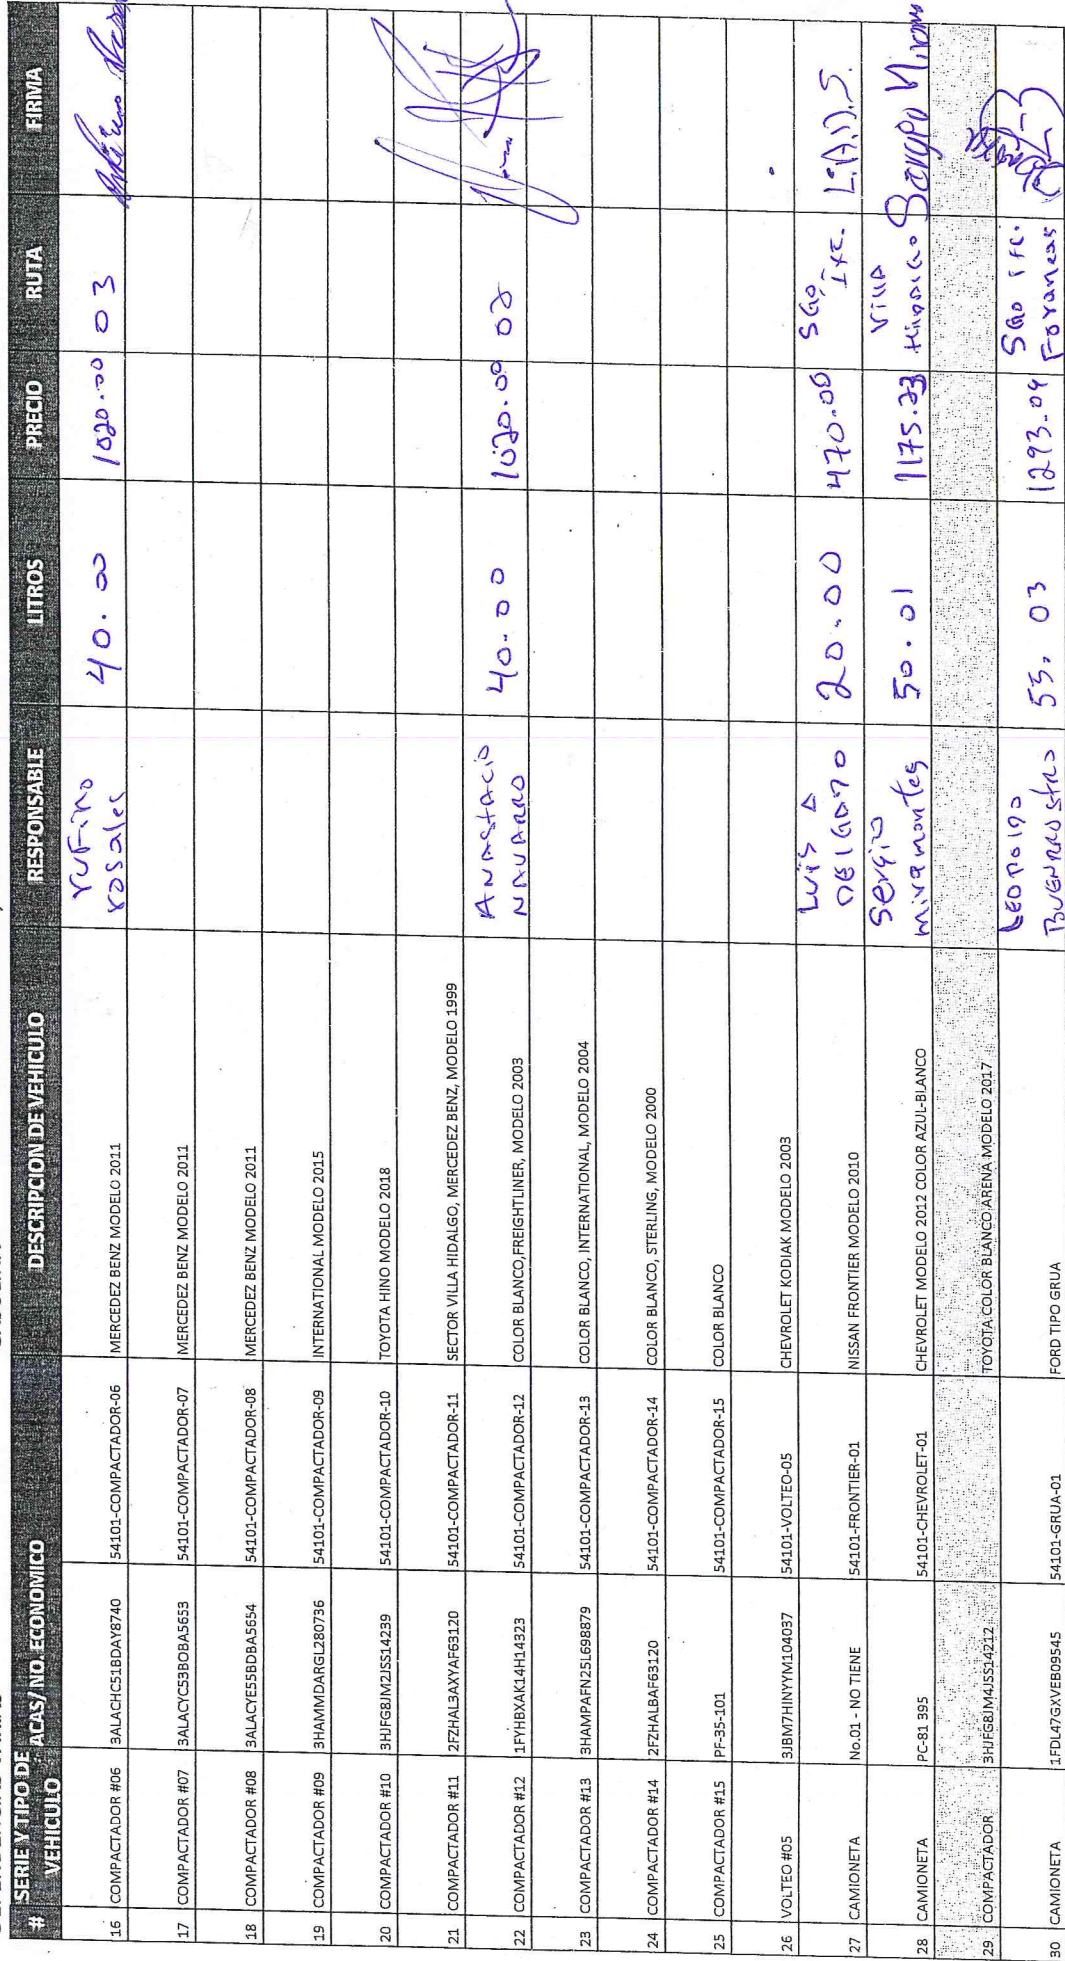 # SERIE Y TIPO DE VEHICULO ACAS/ NO. ECONOMICO DESCRIPCION DE VEHICULO RESPONSABLE LITROS PRECIO RUTA FIRMA
16 COMPACTADOR #06 3ALACHC51BDAY8740 54101-COMPACTADOR-06 MERCEDEZ BENZ MODELO 2011 rufino rosales 40.00 1020.00 03
17 COMPACTADOR #07 3ALACYC53BOBA5653 54101-COMPACTADOR-07 MERCEDEZ BENZ MODELO 2011
18 COMPACTADOR #08 3ALACYE55BDBA5654 54101-COMPACTADOR-08 MERCEDEZ BENZ MODELO 2011
19 COMPACTADOR #09 3HAMMDARGL280736 54101-COMPACTADOR-09 INTERNATIONAL MODELO 2015
20 COMPACTADOR #10 3HJFG8JM2JSS14239 54101-COMPACTADOR-10 TOYOTA HINO MODELO 2018
21 COMPACTADOR #11 2FZHAL3AXYAF63120 54101-COMPACTADOR-11 SECTOR VILLA HIDALGO, MERCEDEZ BENZ, MODELO 1999
22 COMPACTADOR #12 1FYHBXAK14H14323 54101-COMPACTADOR-12 COLOR BLANCO,FREIGHTLINER, MODELO 2003 ANAStACio NAVARRO 40.00 1020.00 02
23 COMPACTADOR #13 3HAMPAFN25L698879 54101-COMPACTADOR-13 COLOR BLANCO, INTERNATIONAL, MODELO 2004
24 COMPACTADOR #14 2FZHALBAF63120 54101-COMPACTADOR-14 COLOR BLANCO, STERLING, MODELO 2000
25 COMPACTADOR #15 PF-35-101 54101-COMPACTADOR-15 COLOR BLANCO
26 VOLTEO #05 3JBM7HINYYM104037 54101-VOLTEO-05 CHEVROLET KODIAK MODELO 2003
27 CAMIONETA No.01 - NO TIENE 54101-FRONTIER-01 NISSAN FRONTIER MODELO 2010 Luis A DElGADO 20.00 470.00 SGO, Ixc. L.A.D.S.
28 CAMIONETA PC-81 395 54101-CHEVROLET-01 CHEVROLET MODELO 2012 COLOR AZUL-BLANCO Sergio miramontes 50.01 1175.23 Villa HidAlGo
29 COMPACTADOR 3HJFG8JM4JSS14212 TOYOTA COLOR BLANCO ARENA MODELO 2017
30 CAMIONETA 1FDL47GXVEB09545 54101-GRUA-01 FORD TIPO GRUA LEOPolDo BUENROStRo 55.03 1293.04 SGo Foraneas